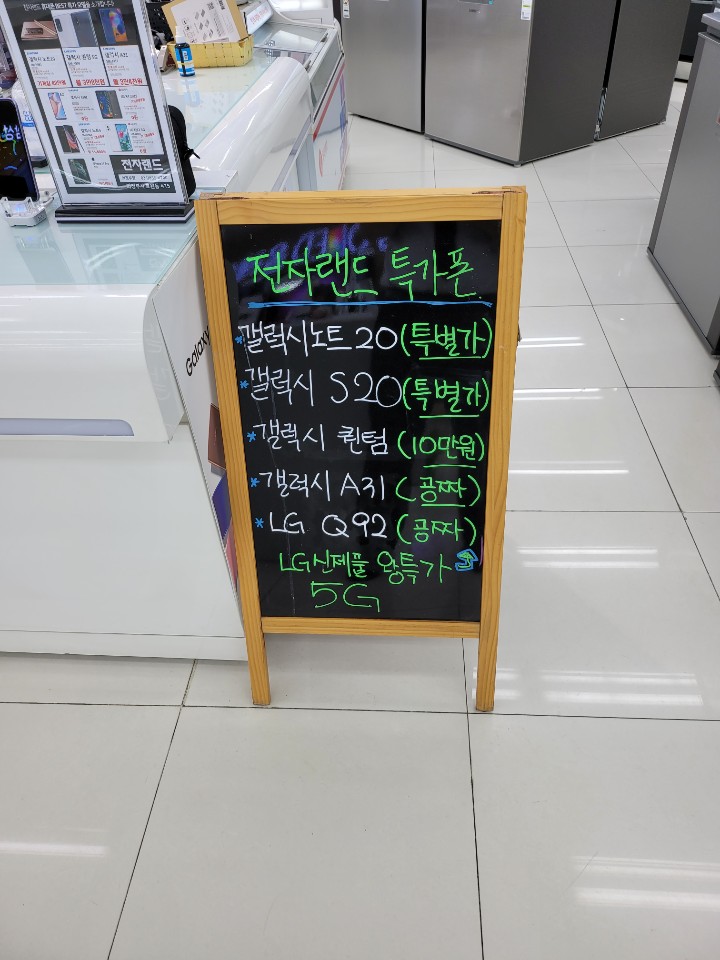 전자랜드
Galaxy
전자랜드 특가폰
*갤럭시노트20(특별가)
*갤럭시 S20(특별가)
*갤럭시 퀀텀 (10만원)
*갤럭시 A31 (공짜)
*LG Q92 (공짜)
LG신제품 왕특가
5G